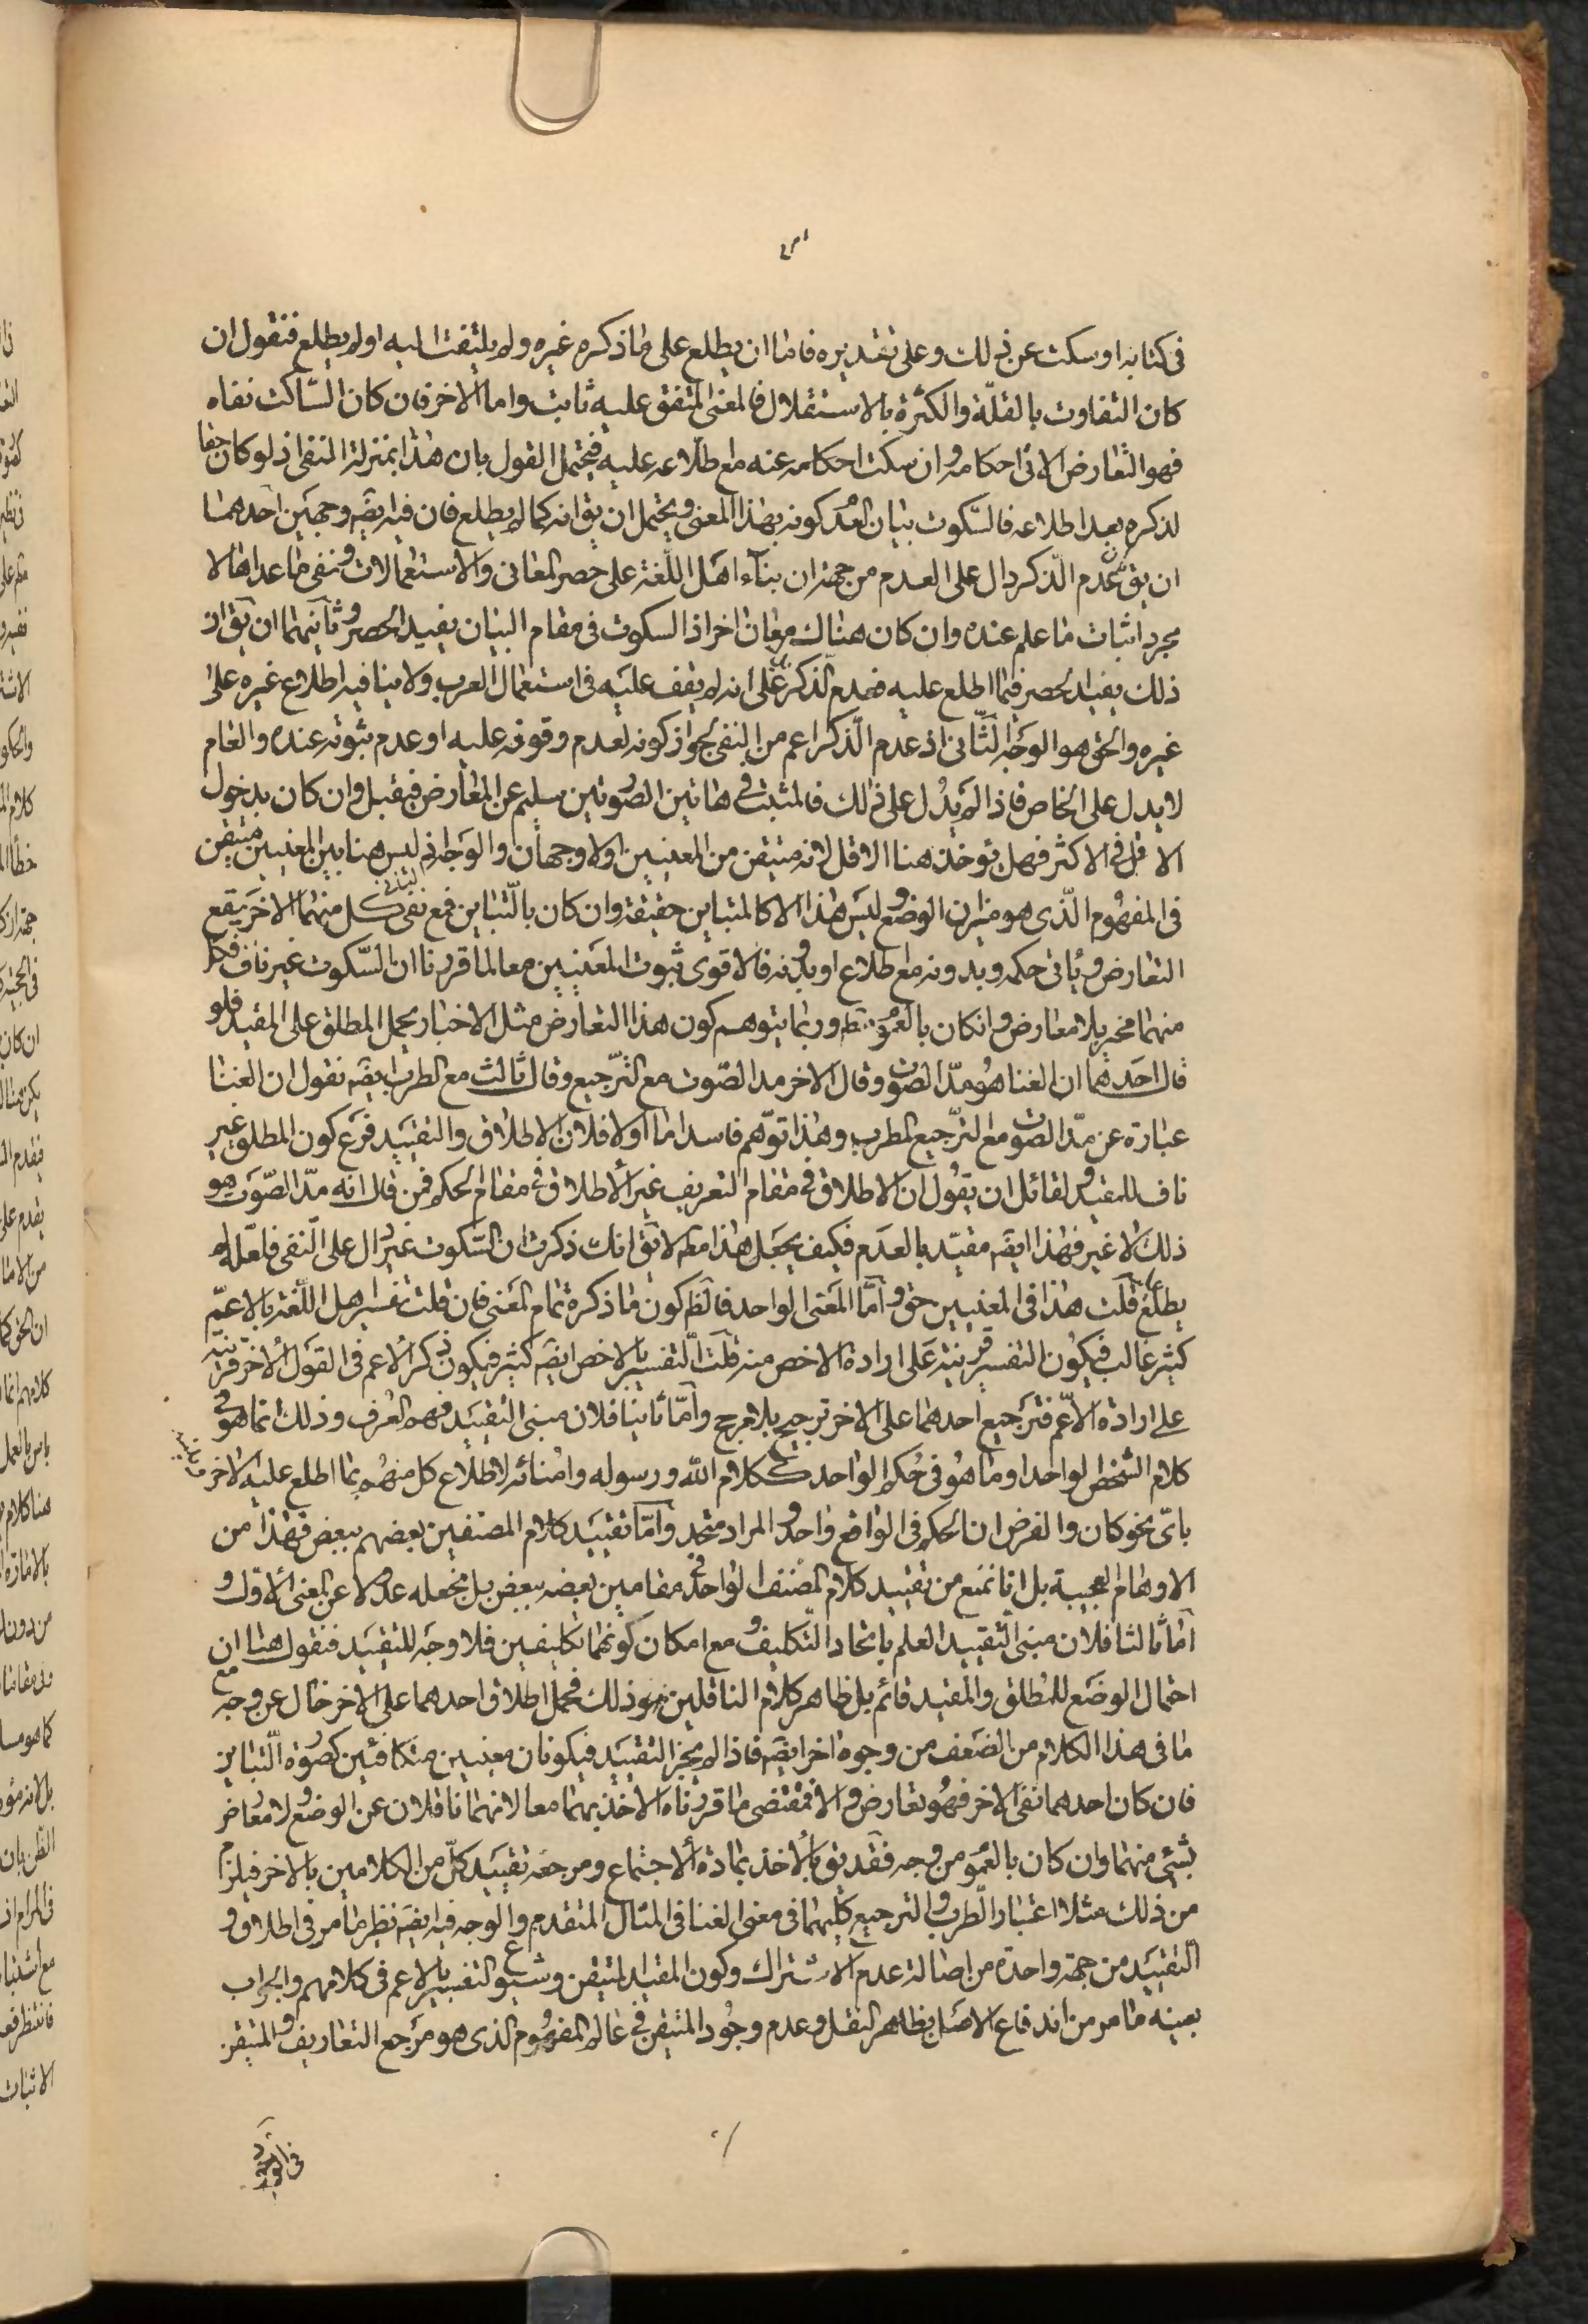 فى كتابه او سكت عن ذلك وعلى تقديره فاما ان يطلع على ما ذكره غيره ولم يلتفت اليه او لم يطلع فنقول ان
كان التفاوت بالقلّة والكثرة بالاستقلال فالمعنى المتفق عليه ثابت واما الاخر فان كان السّاكت نفاه
فهو التعارض الاتى احكامه وان سكت احكامه عنه مع اطلاعه عليه فيحتمل القول بان هذا بمنزلة النفى اذ لو كان حقا
لذكره بعد اطلاعه فالسّكوت بيان لعدم كونه بهذا المعنى ويحتمل ان يق انه كما لم يطلع فان فيه ايضه وجهين احدهما
ان يق عدم الذكر دال على العدم من جهة ان بناء اهل اللّغة على حصر المعانى والاستعمالات ونفى ما عداها لا
مجرد اثبات ما علم عنده وان كان هناك معان اخر اذ السكوت فى مقام البيان يفيد الحصر وثانيهما ان يق ان
ذلك يفيد الحصر فيما اطلع عليه فعدم الذكر على انه لم يقف عليه فى استعمال العرب ولا ينافيه اطلاع غيره على
غيره والحق هو الوجه الثّانى اذ عدم الذّكر اعم من النفى لجواز كونه لعدم وقوفه عليه او عدم ثبوته عنده والعام
لا يدل على الخاص فاذا لم يدل على ذلك فالمثبت فى هاتين الصّورتين سليم عن المعارض فيقبل وان كان بدخول
الاقل فى الاكثر فهل يؤخذ هنا الاقل لانه متيقن من المعنيين اولا وجهان والوجه انه ليس هنا بين المعنيين متيقن
فى المفهوم الّذى هو ميزان الوضع وليس هذا الا كالمتباين حقيقة وان كان بالتّباين فمع نفى كل منهما الاخر يقع
التعارض ويأتى حكمه وبدونه مع اطلاع او بدونه فالاقوى ثبوت المعنيين معا لما قررنا ان السّكوت غير ناف فكل
منهما مخبر بلا معارض وان كان بالعموم المطلق وربما يتوهم كون هذا التعارض مثل الاخبار يحمل المطلق على المقيد فلو
قال احدهما ان الغنا هو مدّ الصّوت وقال الاخر مد الصّوت مع التّرجيع وقال ثالث مع الطرب ايضه نقول ان الغنا
عبارة عن مدّ الصّوت مع التّرجيع المطرب وهذا توّهم فاسد اما اولا فلان الاطلاق والتقييد فرع كون المطلق غير
ناف للمقيد ولقائل ان يقول ان الاطلاق فى مقام التعريف غير الاطلاق فى مقام الحكم فمن قال انه مدّ الصّوت هو
ذلك لا غير فهذا ايضه مقيّد بالعدم فكيف يجعل هذا مط لا يق انك ذكرت ان السّكوت غير دال على النّفى فلعله لم
يطلع قلت هذا فى المعنيين حق واما المعنى الواحد فالظ كون ما ذكره تمام المعنى فان قلت تفسير اهل اللّغة بالاعمّ
كثير غالب فيكون التفسير قرينة على ارادة الاخص منه قلت التّفسير بالاخص ايضه كثير فيكون ذكر الاعم فى القول الاخر قرينة
على ارادة الاعّم فترجيع احدهما على الاخر ترجيح بلا مرجح وامّا ثانيا فلان مبنى التقييد فهم العُرف وذلك انما هو فى
كلام الشخص الواحد او ما هو فى حُكم الواحد ككلام الله ورسوله وامنائه لاطّلاع كل منهم بما اطلع عليه الاخر
باىّ نحو كان والفرض ان الحكم فى الواقع واحد والمراد متحد وامّا تقييد كلام المصنفين بعضهم ببعض فهذا من
الاوهام العجيبة بل انا نمنع من تقييد كلام المصنف الواحد فى مقامين بعضه ببعض بل نجعله عدولا عن المعنى الاول و
امّا ثالثا فلان مبنى التّقييد العلم باتحاد التّكليف ومع امكان كونهما تكليفين فلا وجه للتقييد فنقول هنا ان
احتمال الوضع للمطلق والمقيد قائم بل ظاهر كلام الناقلين هو ذلك فحمل اطلاق احدهما على الاخر خال عن وجه مع
ما فى هذا الكلام من الضعف من وجوه اخر ايضه فاذا لم يجز التقييد فيكونان معنيين متكافئين كصورة التّباين
فان كان احدهما نفى الاخر فهو تعارض والا فمقتضى ما قررناه الاخذ بهما معا لانهما ناقلان عن الوضع ولا معارض
بشئ منهما وان كان بالعموم من وجه فقد يق بالاخذ بمادة الاجتماع ومرجعه تقييد كلّ من الكلامين بالاخر فيلزم
من ذلك مثلا اعتبار الطّرب والترجيع كليهما فى معنى الغنا فى المثال المتقدم والوجه فيه ايضه نظير ما مر فى اطلاق و
التّقييد من جهة واحدة من اصالة عدم الاشتراك وكون المقيد المتيقن وشيوع التفسير بالاعم فى كلامهم والجواب
بعينه ما مر من اندفاع الاصل بظاهر النقل وعدم وجود المتيقن فى عالم المفهوم الذى هو مرجع التعاريف والمتيقن